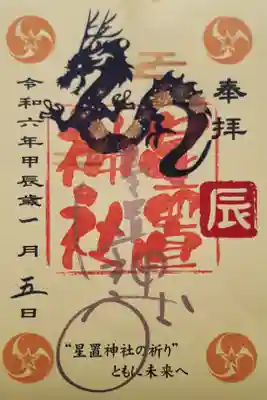 奉拝
辰
星置
神社
令和六年甲辰歳一月五日
“星置神社の祈り”
ともに未来へ